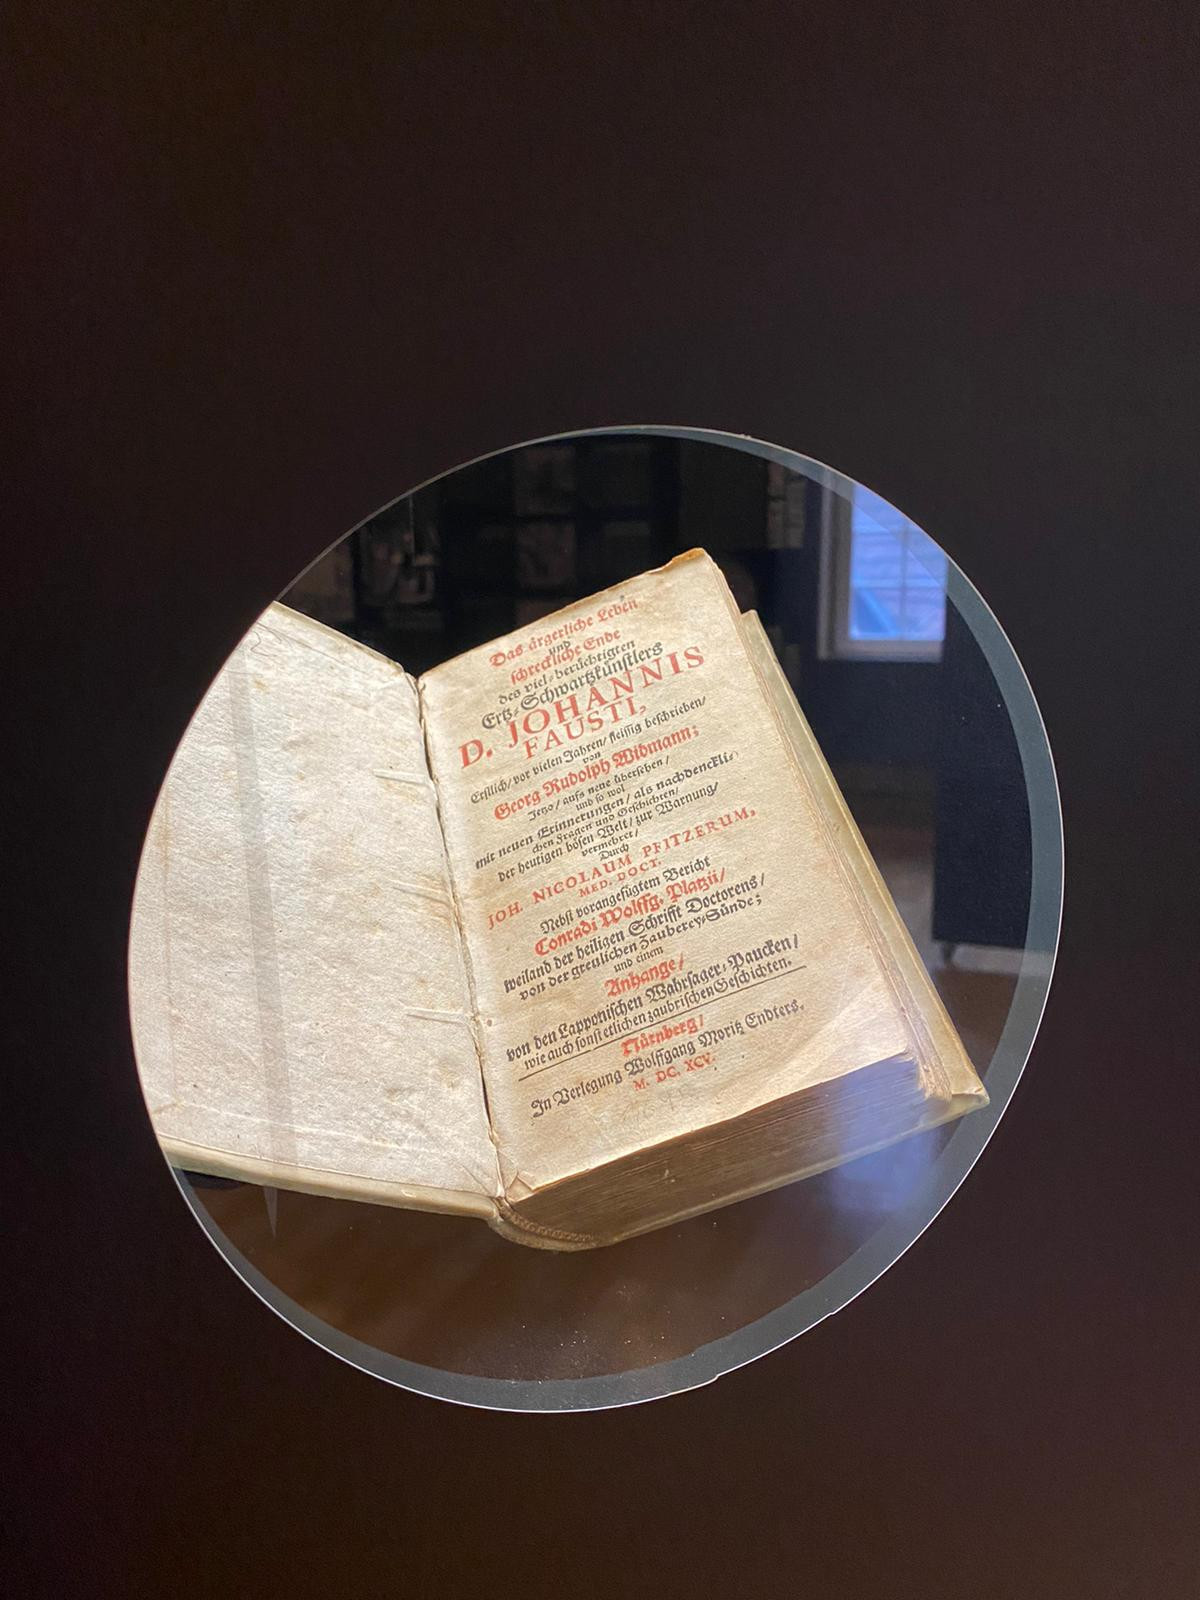 Das ärgerliche Leben
und
schreckliche Ende
des viel-berüchtigten
Ertz-Schwartzkünstlers
D. JOHANNIS
FAUSTI,
Erstlich/ vor vielen Jahren/ fleissig beschrieben/
von
Georg Rudolph Widmann;
Jetzo/ aufs neue übersehen/
und so wol
mit neuen Erinnerungen/ als nachdenckli-
chen Fragen und Geschichten/
der heutigen bösen Welt/ zur Warnung/
vermehret/
Durch
JOH. NICOLAUM PFITZERUM,
MED. DOCT.
Nebst vorangefügtem Bericht
Conradi Wolffg. Platzii/
weiland der heiligen Schrifft Doctorens/
von der greulichen Zauberey-Sünde;
und einem
Anhange/
von den Lapponischen Wahrsager-Paucken/
wie auch sonst etlichen zaubrischen Geschichten.
Nürnberg/
In Verlegung Wolffgang Moritz Endters.
M. DC. XCV.